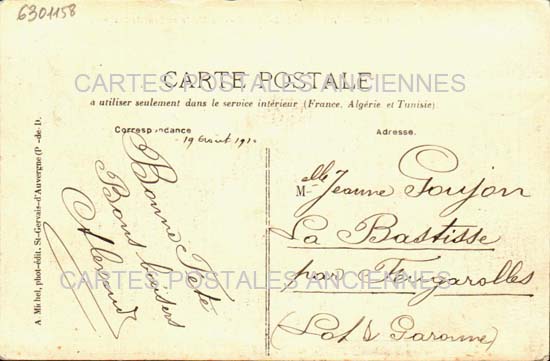 6301158
CARTES POSTALES ANCIENNES
CARTE POSTALE
a utiliser seulement dans le service intérieur (France, Algérie et Tunisie)
Correspondance
19 Août 191
Adresse.
A Michel, phot-édit. St-Gervais-d'Auvergne (P-de-D.
Bonne Fête
Bons baisers
Melle Jeanne Goujon
La Bastisse
par Fougarolles
(Lot & Garonne)
CARTES POSTALES ANCIENNES